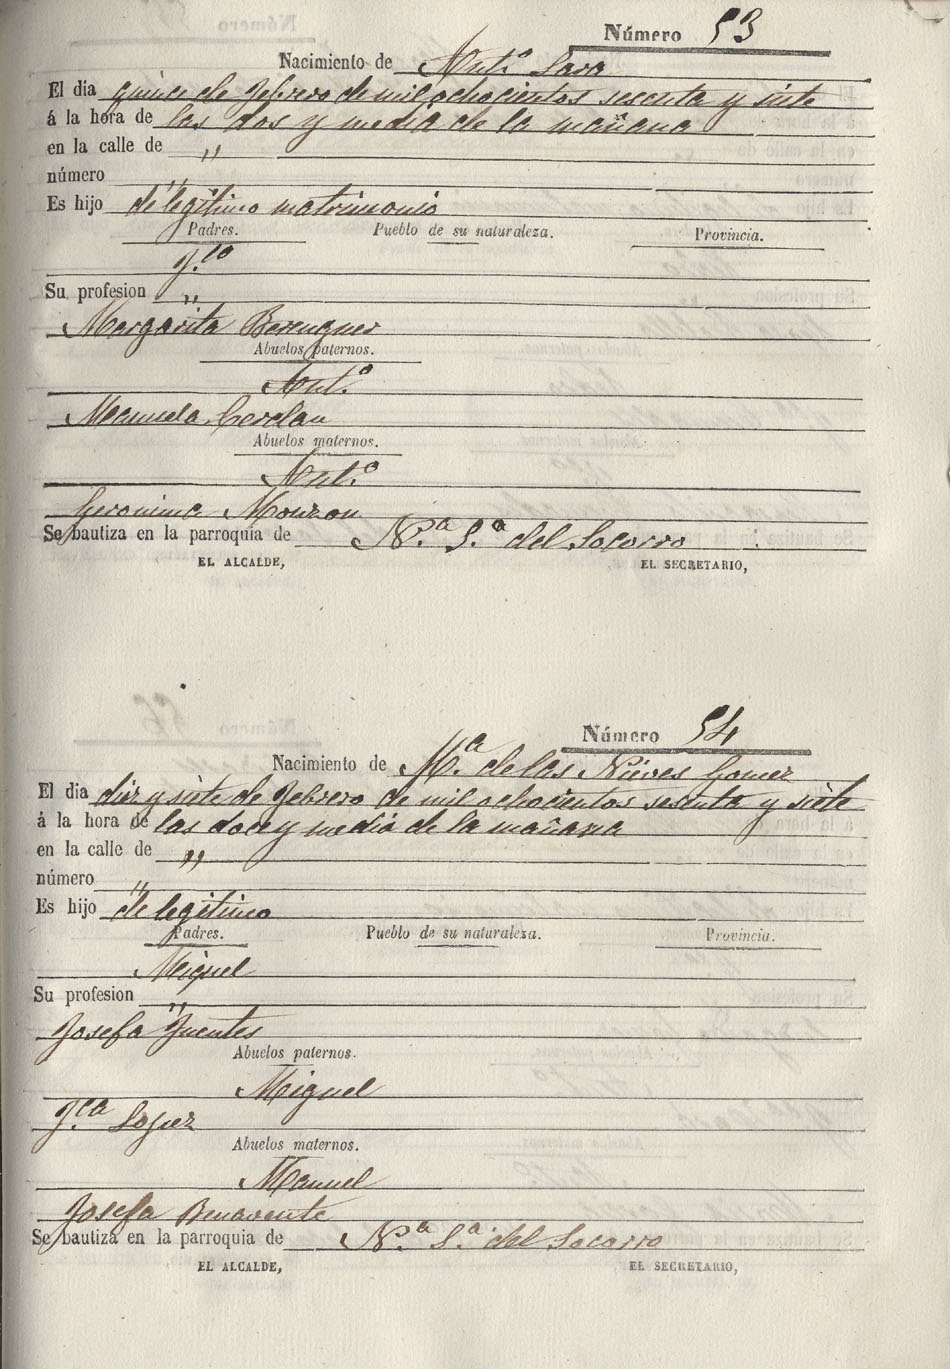 Número 53
Nacimiento de Antº Lara
El dia quince de Febrero de mil ochocientos sesenta y siete
á la hora de las dos y media de la mañana
en la calle de "
número "
Es hijo de legítimo matrimonio
Padres. Pueblo de su naturaleza. Provincia.
Fco
Su profesion "
Margarita Berenguer
Abuelos paternos.
Antº
Manuela Cerdan
Abuelos maternos.
Antº
Geronima Monzon
Se bautiza en la parroquia de N.ª S.ª del Socorro
EL ALCALDE, EL SECRETARIO,
Número 54
Nacimiento de M.ª de las Nieves Gomez
El dia diez y siete de Febrero de mil ochocientos sesenta y siete
á la hora de las doce y media de la mañana
en la calle de "
número "
Es hijo de legítimo
Padres. Pueblo de su naturaleza. Provincia.
Miguel
Su profesion "
Josefa Fuentes
Abuelos paternos.
Miguel
Fca Lopez
Abuelos maternos.
Manuel
Josefa Benavente
Se bautiza en la parroquia de N.ª S.ª del Socorro
EL ALCALDE, EL SECRETARIO,